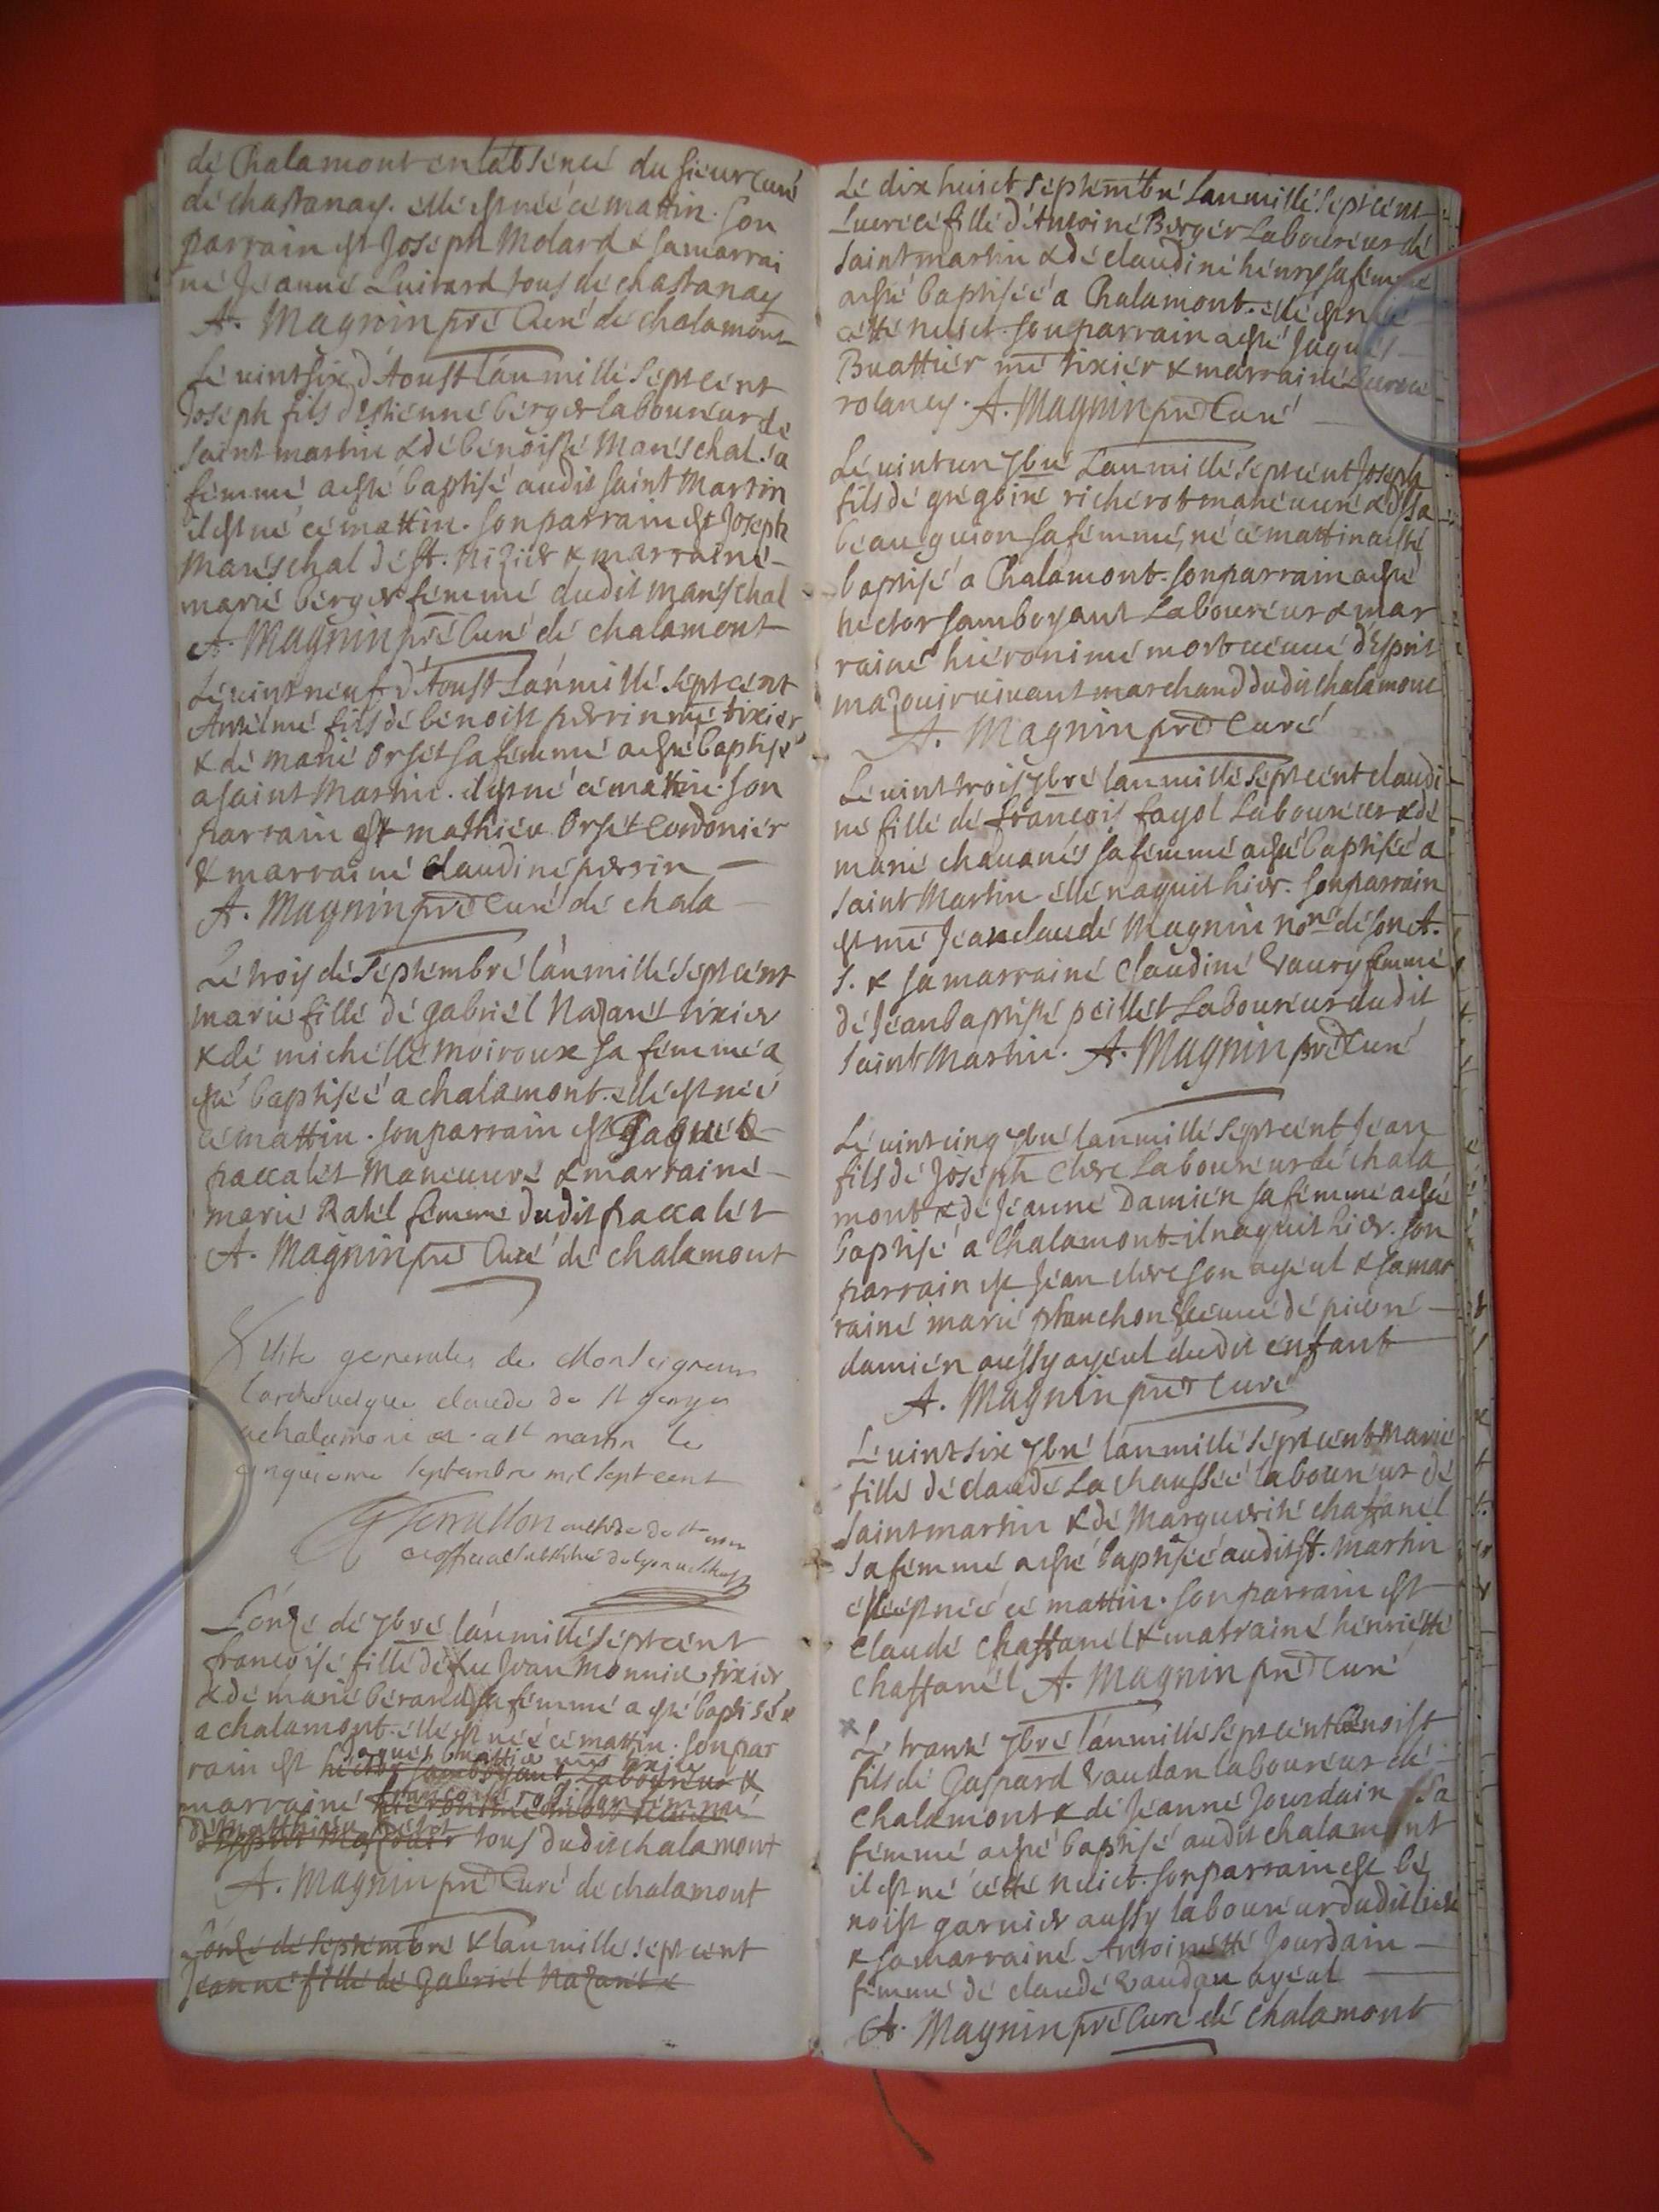 de Chalamont en labsence du sieur curé
de chastanay. elle est née ce mattin. son
parrain est Joseph Molard & sa marrai
ne Jeanne Luitard tous de chastanay
A. Magnin prê Curé de chalamont
Le vint six d'Aoust l'an mille sept cent
Joseph fils d'estienne berger laboureur de
saint martin & de benoiste Mareschal sa
femme a esté baptisé audit saint Martin
il est né ce mattin. son parrain est Joseph
Mareschal de St. Nizier & marraine
marie berger femme dudit mareschal
A. Magnin prê Curé de chalamont
Le vint neuf d'Aoust l'an mille sept cent
Antelme fils de benoist perrin me tixier
& de marie Orset sa femme a esté baptisé
a saint Martin. il est né ce mattin. son
parrain est mathieu Orset Cordonier
& marraine Claudine perrin
A. Magnin prê Curé de chala
Le trois de septembre l'an mille sept cent
marie fille de gabriel Nazaret tixier
& de michelle moiroux sa femme a
esté baptisée a chalamont. elle est née
ce mattin. son parrain est Jaques
paccalet Maneuvre & marraine
marie Ratel femme dudit paccalet
A. Magnin prê Curé de chalamont
Visite generalle de Monseigneur
larchevesque claude de st george
a chalamont et a st martin le
cinquieme septembre mil sept cent
Terrasson
L'onze de 7bre l'an mille sept cent
francoise fille de feu Jean Monnier tixier
& de marie berand sa femme a esté baptisée
a chalamont. elle est née ce mattin. son par
Jaques buattier me tixier
rain est hector Jamboyant Laboureur &
francoise rodillon femme
marraine hieronime mort veuve
de matthieu
d'esprit mazouir tous dudit chalamont
A. Magnin prê Curé de chalamont
L'onze de septembre & l'an mille sept cent
Jeanne fille de Gabriel Nazaret &
Le dix huict septembre l'an mille sept cent
Lucrece fille d'Antoine Berger Laboureur de
saint martin & de claudine henry sa femme
a esté baptisée a Chalamont. elle est née
cette nuict. son parrain a esté Jaques
Buattier me tixier & marraine Lucrece
rolancy. A. Magnin prê Curé
Le vint un 7bre L'an mille sept cent Joseph
fils de gregoire richerot maneuvre & d'Isa
beau guion sa femme, né ce mattin a esté
baptisé a Chalamont. son parrain a esté
hector Jamboyant Laboureur & mar
raine hieronime mort veuve d'Esprit
mazouir vivant marchand dudit chalamont
A. Magnin prê Curé
Le vint trois 7bre l'an mille sept cent claudi
ne fille de francois fayol Laboureur & de
marie chavanes sa femme a esté baptisée a
saint Martin elle naquit hier. son parrain
est me Jean claude Magnin Nore de son A.
S. & sa marraine Claudine Vaury femme
de Jean baptiste peillet Laboureur dudit
saint Martin. A. Magnin prê Curé
Le vint cinq 7bre l'an mille sept cent Jean
fils de Joseph Clere Laboureur de chala
mont & de Jeanne Damien sa femme a esté
baptisé a Chalamont il naquit hier. son
parrain est Jean clere son ayeul & sa mar
raine marie planchon femme de pierre
damien aussy ayeul dudit enfant
A. Magnin prê Curé
Le vint six 7bre l'an mille sept cent Marie
fille de claude La chaussée laboureur de
saint martin & de Marguerite chaffanel
sa femme a esté baptisée audit st. Martin
elle est née ce mattin. son parrain est
claude chaffanel & marraine henriette
chaffanel A. Magnin prê Curé
x
Le trante 7bre l'an mille sept cent Benoist
fils de Gaspard Vaudan laboureur de
Chalamont & de Jeanne Jourdain sa
femme a esté baptisé audit chalamont
il est né cette nuict. son parrain est be
noist garnier aussy laboureur dudit lieu
& sa marraine Antoinette Jourdain
femme de claude Vaudan ayeul
A. Magnin prê Curé de chalamont